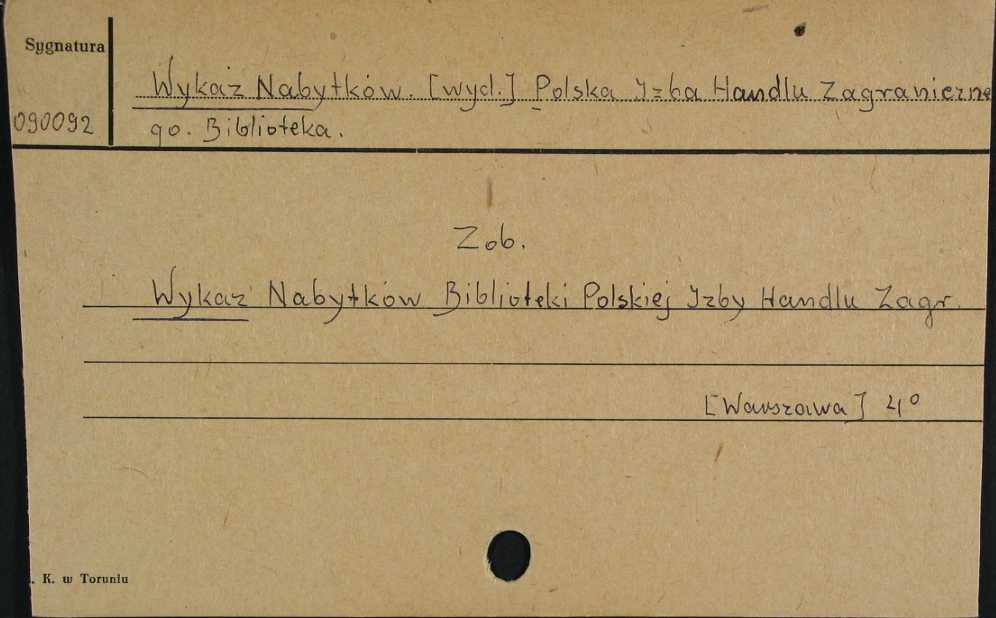 Sygnatura
Wykaz Nabytków. [wyd.] Polska Izba Handlu Zagraniczne
090092
go. Biblioteka.
Zob.
Wykaz Nabytków Biblioteki Polskiej Izby Handlu Zagr.
[Warszawa] 4°
. K. w Toruniu